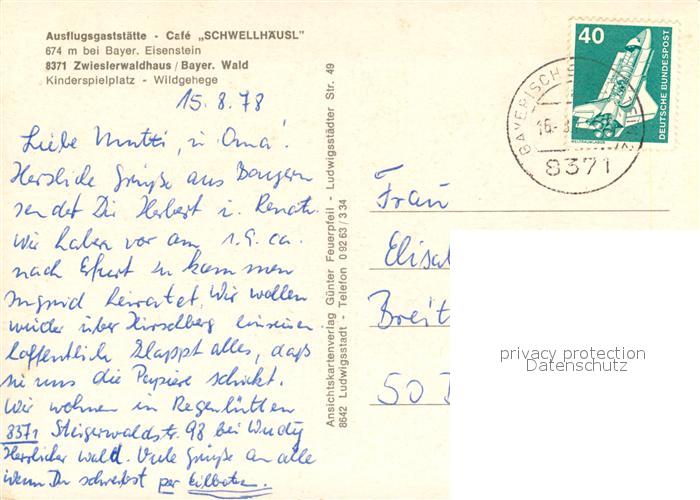 Ausflugsgaststätte - Café „SCHWELLHÄUSL"
674 m bei Bayer. Eisenstein
8371 Zwieslerwaldhaus / Bayer. Wald
Kinderspielplatz - Wildgehege
15.8.78
Liebe Mutti, u. Oma!
Herzliche Grüße aus Bayern
sendet Dir Herbert u. Renate.
Wir haben vor am 1.9. ca.
nach Erfurt zu kommen
Ingrid heiratet. Wir wollen
wieder über Hirschberg einreisen
hoffentlich klappt alles, daß
sie uns die Papiere schickt.
Wir wohnen in Regenhütten
8371 Steigerwaldstr. 98 bei
Herrlicher Wald. Viele Grüße an alle
wenn Du schreibst per Eilboten.
Ansichtskartenverlag Günter Feuerpfeil - Ludwigsstädter Str. 49
8642 Ludwigsstadt - Telefon 0 92 63 / 3 34
40
DEUTSCHE BUNDESPOST
WELTRAUMLABOR
BAYERISCH
16.
8371
Frau
Elisa
Breit
50
privacy protection
Datenschutz